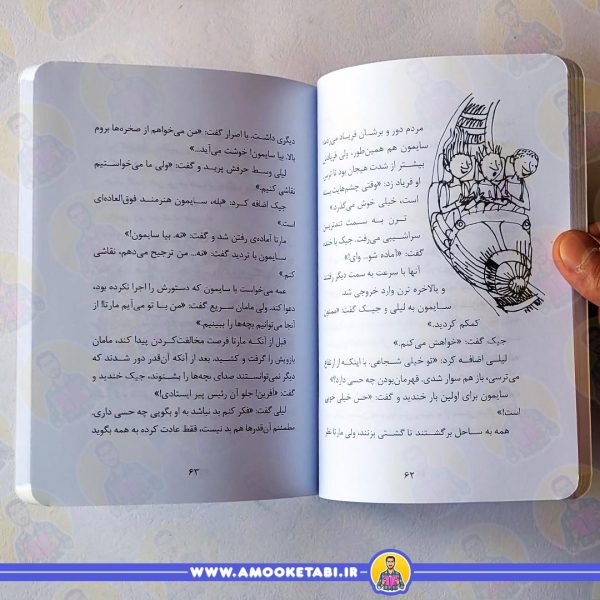 مردم دور و برشان فریاد می‌زدند
سایمون هم همین‌طور، ولی فریادش
بیشتر از شدت هیجان بود تا ترس.
او فریاد زد: «وقتی چشم‌هایت بسته
است، خیلی خوش می‌گذرد!»
ترن به سمت تندترین
سراشیبی می‌رفت. جیک با خنده
گفت: «آماده شو... وای!»
آنها با سرعت به سمت دیگر رفتند
و بالاخره ترن وارد خروجی شد.
سایمون به لیلی و جیک گفت «ممنون
کمکم کردید.»
جیک گفت: «خواهش می‌کنم.»
لیلی اضافه کرد: «تو خیلی شجاعی. با اینکه از ارتفاع
می‌ترسی، باز هم سوار شدی. قهرمان‌بودن چه حسی دارد؟»
سایمون برای اولین بار خندید و گفت: «حس خیلی خوبی
است!»
همه به ساحل برگشتند تا گشتی بزنند، ولی مارتا نظر
۶۲
دیگری داشت. با اصرار گفت: «من می‌خواهم از صخره‌ها بروم
بالا. بیا سایمون! خوشت می‌آید...»
لیلی وسط حرفش پرید و گفت: «ولی ما می‌خواستیم
نقاشی کنیم.»
جیک اضافه کرد: «بله، سایمون هنرمند فوق‌العاده‌ای
است.»
مارتا آماده‌ی رفتن شد و گفت: «نه. بیا سایمون!»
سایمون با تردید گفت: «نه... من ترجیح می‌دهم، نقاشی
کنم.»
عمه می‌خواست با سایمون که دستورش را انجام نکرده بود،
دعوا کند. ولی مامان سریع گفت: «من با تو می‌آیم مارتا! از
آنجا می‌توانیم بچه‌ها را ببینیم.»
قبل از آنکه مارتا فرصت مخالفت‌کردن پیدا کند، مامان
بازویش را گرفت و کشید. بعد از آنکه آن‌قدر دور شدند که
دیگر نمی‌توانستند صدای بچه‌ها را بشنوند، جیک خندید و
گفت: «آفرین! جلو آن رئیس پیر ایستادی!»
لیلی گفت: «فکر کنم بد نباشد به او بگویی چه حسی داری.
مطمئنم آن‌قدرها هم بد نیست، فقط عادت کرده به همه بگوید
۶۳
WWW.AMOOKETABI.IR